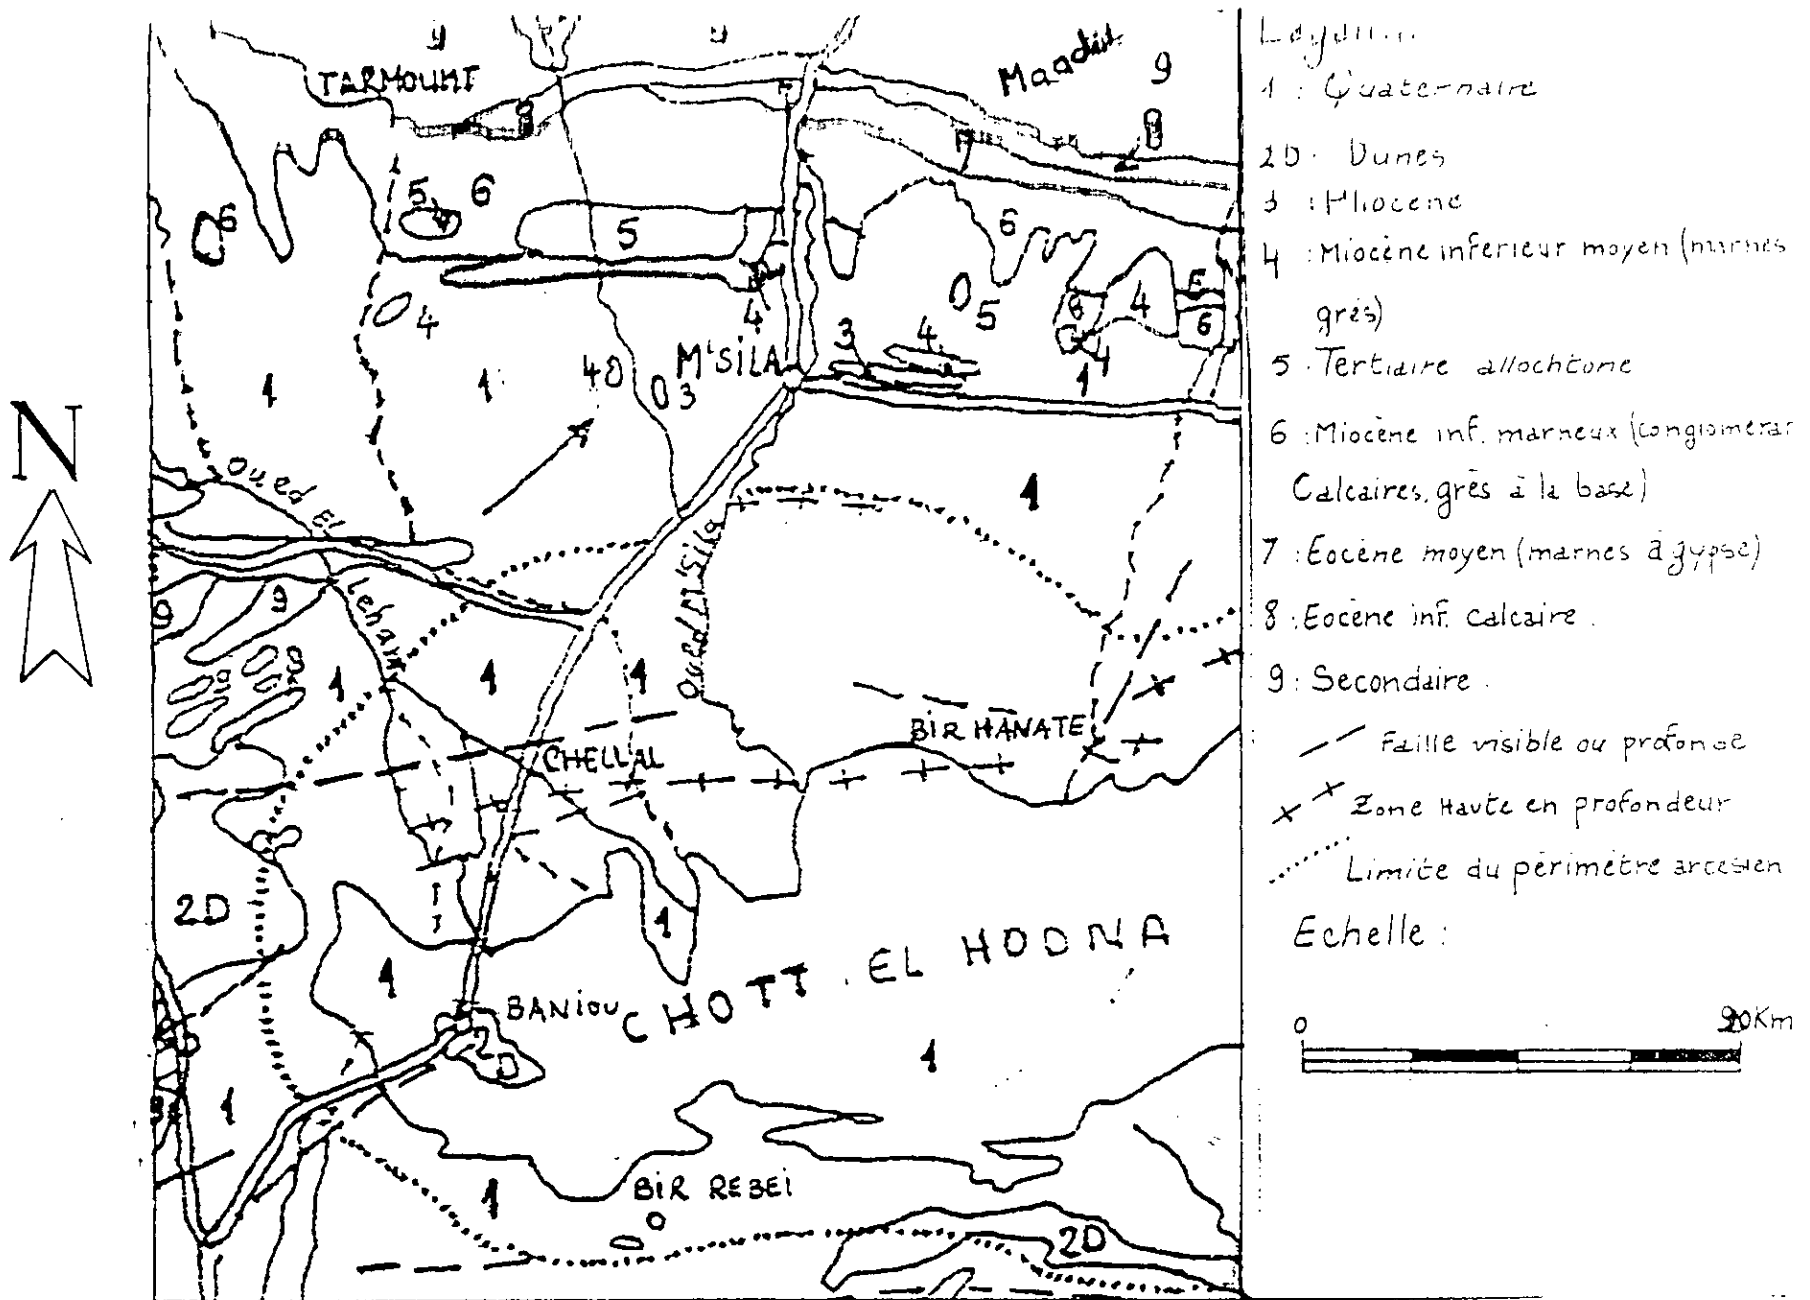 TARMOUNT
Maadid
9
9
9
8
8
6
5
6
5
6
5
4
4
3
4
8
4
6
4
M'SILA
1
1
4
3
1
N
Oued El
Leham
Oued M'Sila
1
9
9
1
1
1
BIR HANATE
CHELLAL
2D
1
1
BANIOU
CHOTT EL HODNA
2D
1
1
1
BIR REBEI
2D
1 : Quaternaire
2D : Dunes
3 : Pliocene
4 : Miocène inferieur moyen (marnes
grés)
5 . Tertiaire allochtone
6 : Miocène inf. marneux (conglomerat
Calcaires, grès à la base)
7 : Eocène moyen (marnes à gypse)
8 : Eocène inf. calcaire .
9 : Secondaire .
Faille visible ou profonde
Zone Haute en profondeur
Limite du périmètre artesien
Echelle :
0
Km